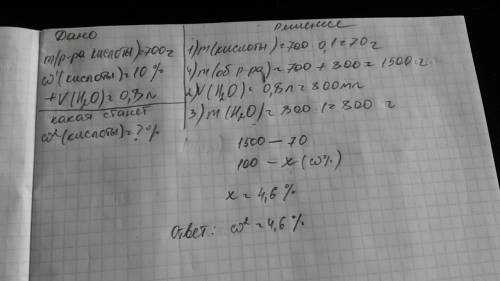 Дано
m(р-ра кислоты)=700г
ω¹(кислоты)=10%
+V(H₂O)=0,8л
какая станет
ω²(кислоты)=?%
Решение
1) m(кислоты)=700·0,1=70г
4) m(об р-ра)=700+800=1500г.
2) V(H₂O)=0,8л=800мл
3) m(H₂O)=800·1=800 г
1500—70
100—x(ω%)
x=4,6%
Ответ: ω²=4,6%